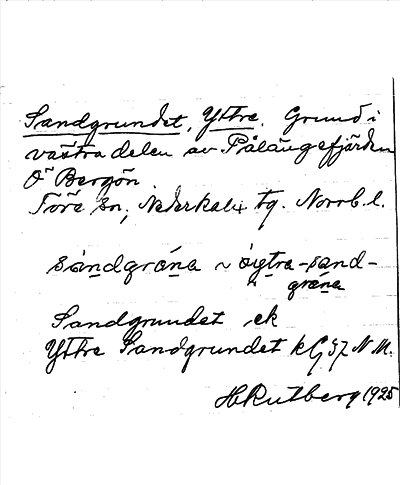 Sandgrundet, Yttre. Grund i
västra delen av Pålängefjärden
O Bergön.
Töre sn, Nederkalix tg. Norrb. l.
sandgrøna ~ ytra-sand-
grøna
Sandgrundet ek
Yttre Sandgrundet kG 37 N.M.
H Rutberg 1925